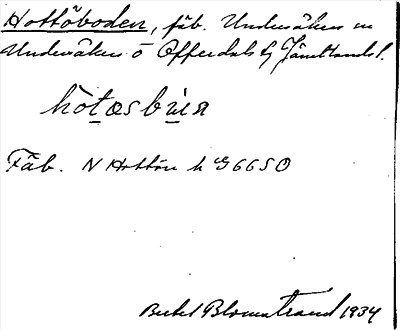 Hottöboden, fäb. Undersåkers sn
Undersåkers o Offerdals tg Jämtlands l.
hòtæsbùɑ
Fäb. N Hottön h G6650
Bertil Blomstrand 1934